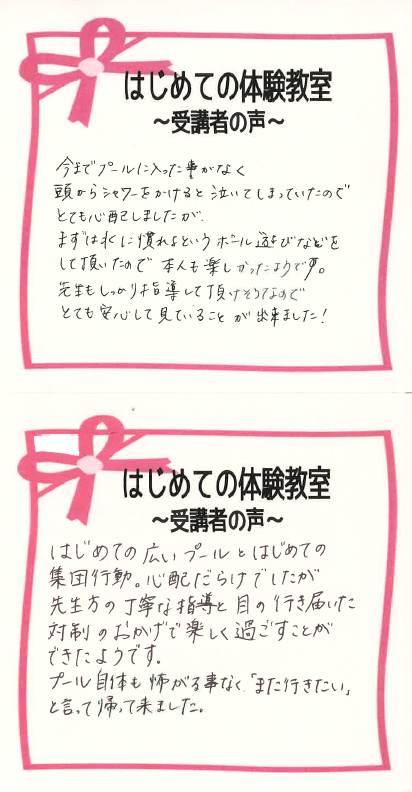 はじめての体験教室
～受講者の声～
今までプールに入った事がなく
頭からシャワーをかけると泣いてしまっていたので
とても心配しましたが、
まずは水に慣れよというボール遊びなどを
して頂いたので本人も楽しかったようです。
先生もしっかり指導して頂けそうなので
とても安心して見ていることが出来ました!
はじめての体験教室
～受講者の声～
はじめての広いプールとはじめての
集団行動。心配だらけでしたが
先生方の丁寧な指導と目の行き届いた
対制のおかげで楽しく過ごすことが
できたようです。
プール自体も怖がる事なく、「また行きたい」
と言って帰って来ました。